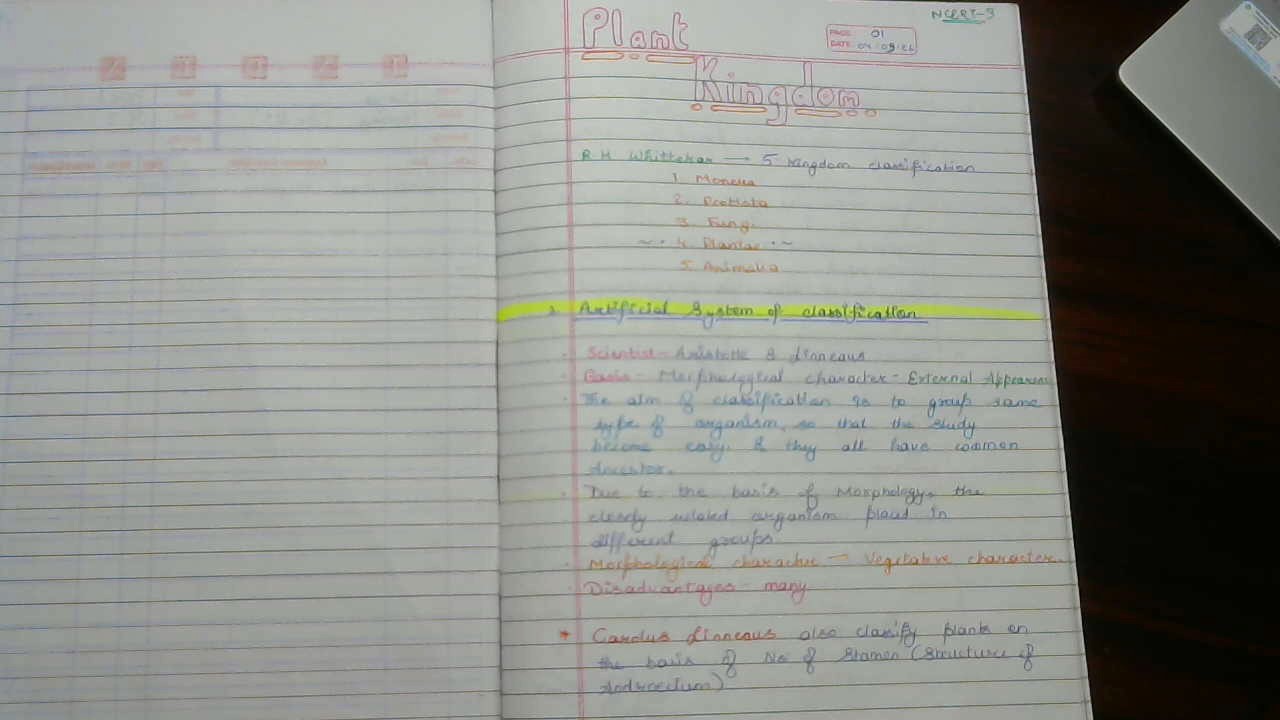 NCERT-3
Plant
PAGE: 01
DATE: 04:09:26
Kingdom
R H Whittekar → 5 Kingdom classification
1. Monera
2. Protista
3. Fungi
~ • 4. Plantae • ~
5. Animalia
Artificial System of classification
Scientist - Aristotle & linneous
Basis - Morphological character - External Appearens
The aim of classification is to group same
type of organism, so that the study
become easy. & they all have common
Ancestor.
Due to the basis of Morphology, the
closely related organism placed in
different groups
Morphological character → Vegetative character.
Disadvantages - many
* Carolus linneous also classify plants on
the basis of No of Stamen (Structure of
Androecium)